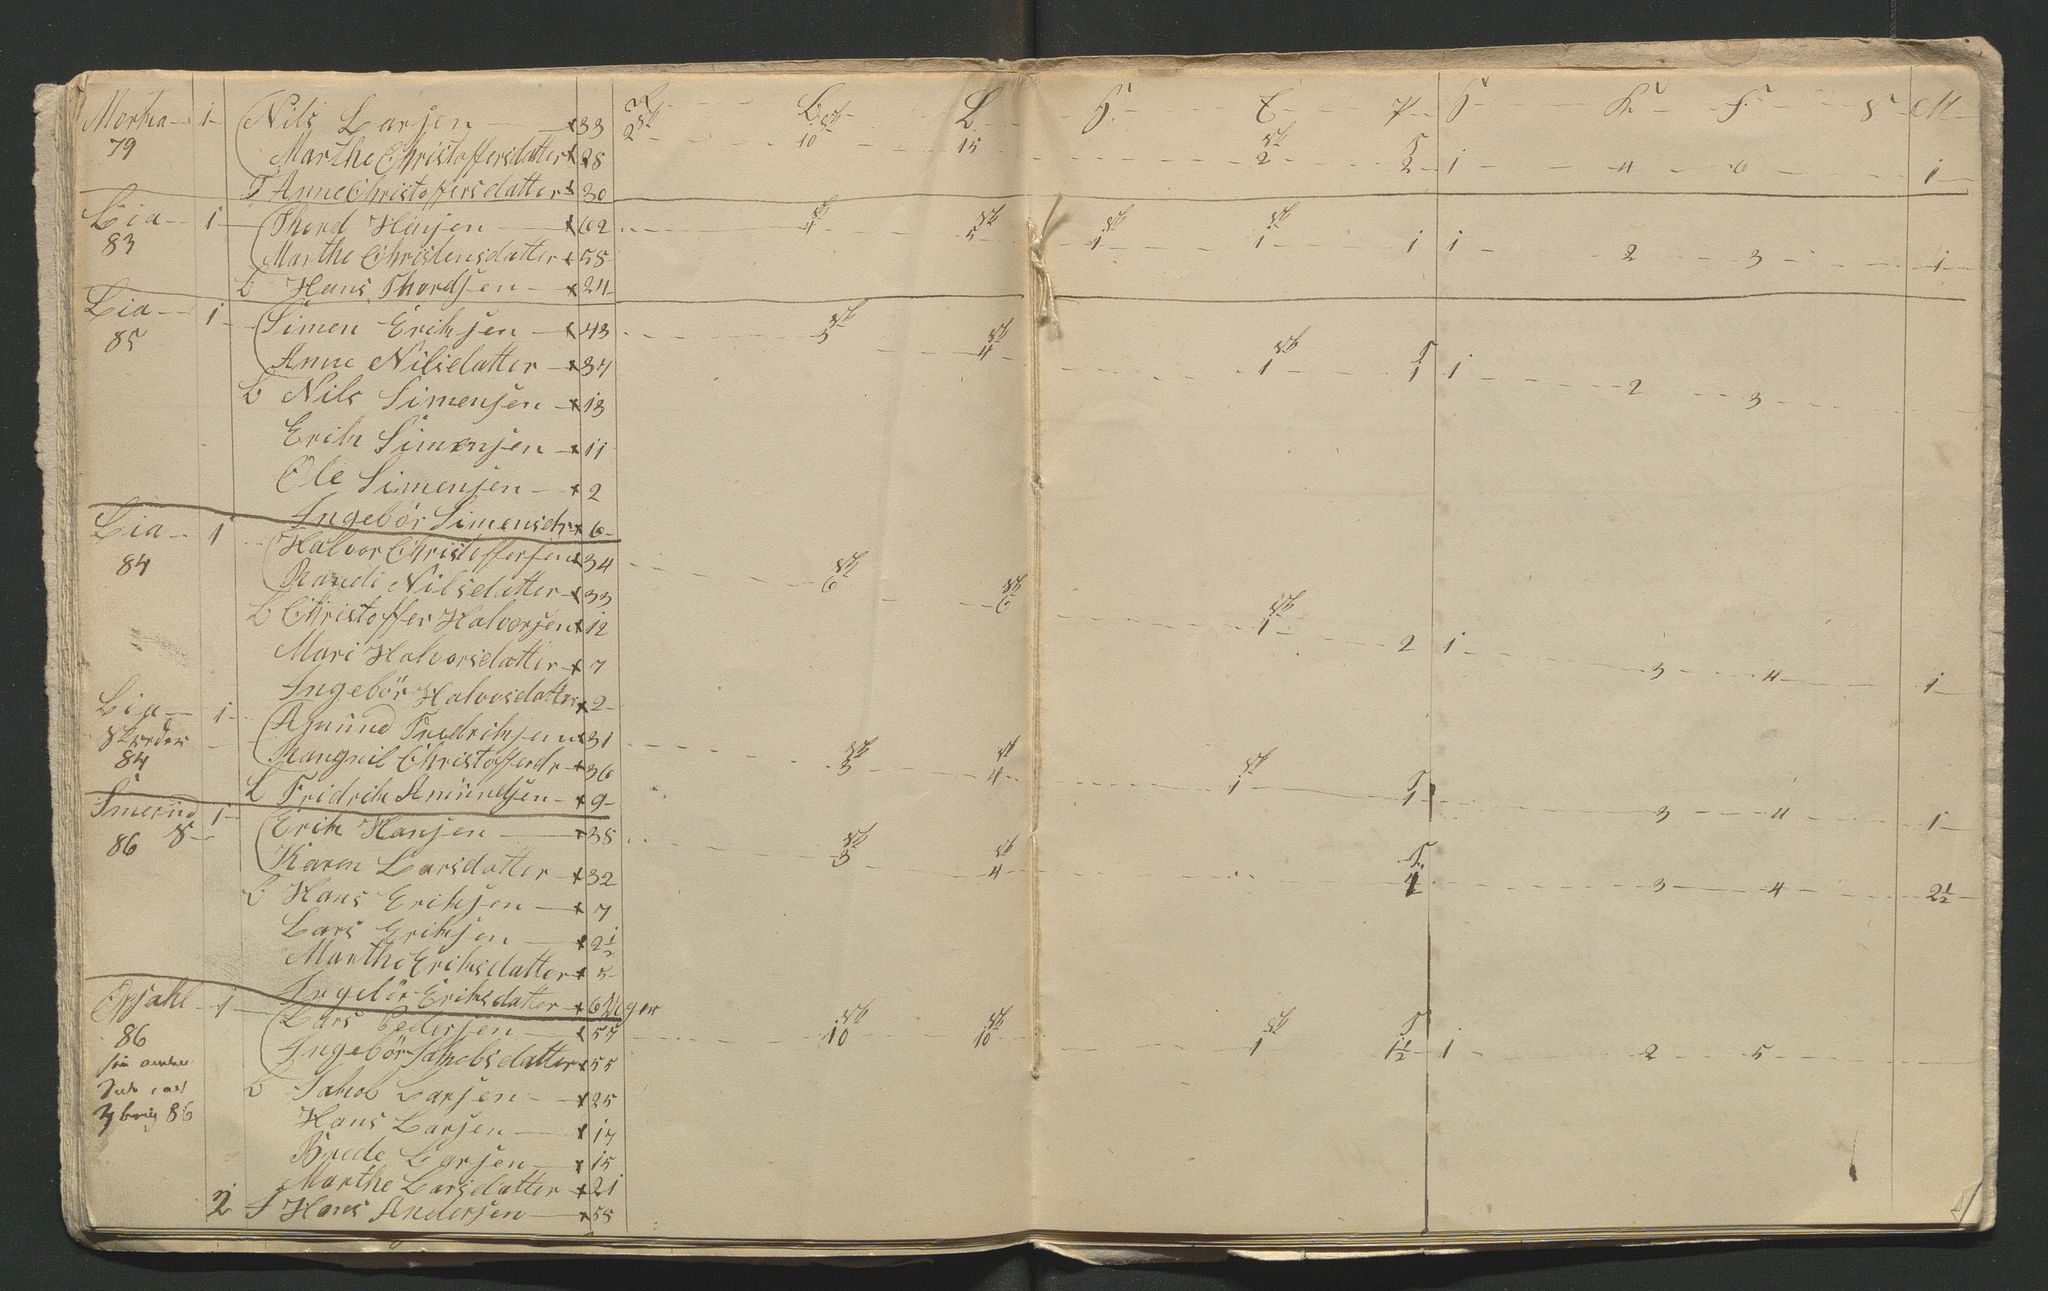 R B L H E P H K F S M
Morka 1 Nils Larsen x 33 2 10 15 2 2 1 4 6 1
79 Marthe Christoffersdatter x 28
T Anne Christoffersdatter x 30
Lia 1 Thord Hansen x 62 4 5 1 1 1 1 2 3 1
83 Marthe Christensdatter x 58
B Hans Thordsen x 24
Lia 1 Simen Eriksen x 43 3 4 1 1 1 2 3
85 Anne Nilsdatter x 37
B Nils Simensen x 13
Erik Simensen x 11
Ole Simensen x 2
Ingebör Simensdr x 6
Lia 1 Halvor Christoffersen x 34 6 6 1 2 1 3 4 1
84 Randi Nilsdatter x 33
B Christoffer Halvorsen x 12
Mari Halvorsdatter x 7
Ingebör Halvorsdatter x 2
Lia 1 Amund Fredriksen x 31 3 4 1 1 3 4 1
84 Rangnil Christoffersdr x 36
B Fridrik Amundsen x 9
Smerud 1 Erik Hansen x 38 3 4 3 4 2½
86 Karen Larsdatter x 32
B Hans Eriksen x 7
Lars Eriksen x 2½
Marthe Eriksdatter x 5
Ingebör Eriksdatter x 6 Uger
Opsahl 1 Lars Pedersen x 57 10 10 1 1½ 1 2 5
86 Ingebör Jakobsdatter x 55
B Jakob Larsen x 25
86 Hans Larsen x 17
Larsen x 15
Marthe Larsdatter x 21
2 Hans Andersen x 58